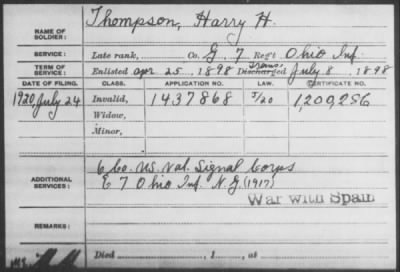 NAME OF SOLDIER: Thompson, Harry H.
SERVICE: Late rank, Co. G. 7 Reg't Ohio Inf.
TERM OF SERVICE: Enlisted Apr 25, 1898 Trans. Discharged July 8, 1898
DATE OF FILING. CLASS. APPLICATION NO. LAW. CERTIFICATE NO.
1920, July 24 Invalid, 1437868 5/20 1,200,256
Widow,
Minor,
ADDITIONAL SERVICES: 6 Co. U.S. Vol. Signal Corps
E 7 Ohio Inf. N.G. (1917)
War with Spain
REMARKS:
Died , 1 , at